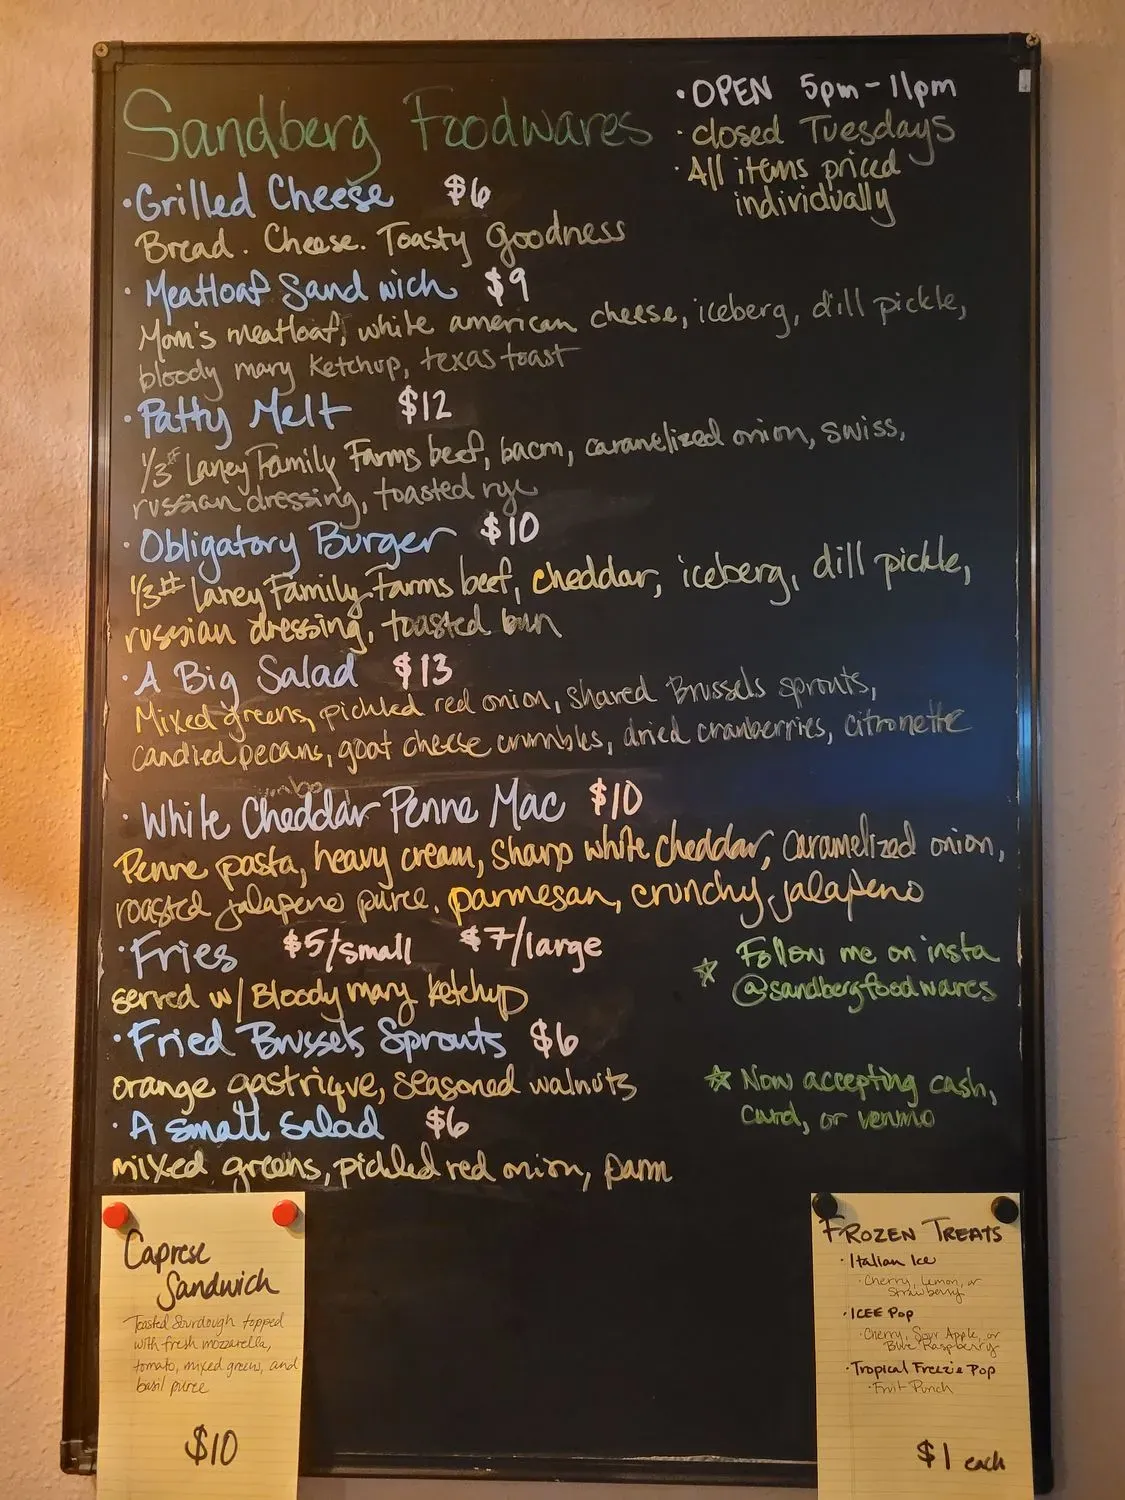 Sandberg Foodwares
• OPEN 5pm - 11pm
• closed Tuesdays
• All items priced
individually
• Grilled Cheese $6
Bread. Cheese. Toasty Goodness
• Meatloaf Sandwich $9
Mom's meatloaf, white american cheese, iceberg, dill pickle,
bloody mary ketchup, texas toast
• Patty Melt $12
1/3# Laney Family Farms beef, bacon, caramelized onion, swiss,
russian dressing, toasted rye
• Obligatory Burger $10
1/3# Laney Family Farms beef, cheddar, iceberg, dill pickle,
russian dressing, toasted bun
• A Big Salad $13
Mixed greens, pickled red onion, shared Brussels sprouts,
candied pecans, goat cheese crumbles, dried cranberries, citronette
• White Cheddar Penne Mac $10
Penne pasta, heavy cream, sharp white cheddar, caramelized onion,
roasted jalapeno puree, parmesan, crunchy jalapeno
• Fries $5/small $7/large
served w/ Bloody mary ketchup
☆ Follow me on insta
@sandbergfoodwares
• Fried Brussels Sprouts $6
orange gastrique, seasoned walnuts
☆ Now accepting cash,
card, or venmo
• A small Salad $6
mixed greens, pickled red onion, parm
Caprese
Sandwich
Toasted Sourdough topped
with fresh mozzarella,
tomato, mixed greens, and
basil puree
$10
FROZEN TREATS
• Italian Ice
• Cherry, Lemon, or
Strawberry
• ICEE Pop
• Cherry, Sour Apple, or
Blue Raspberry
• Tropical Freezie Pop
• Fruit Punch
$1 each